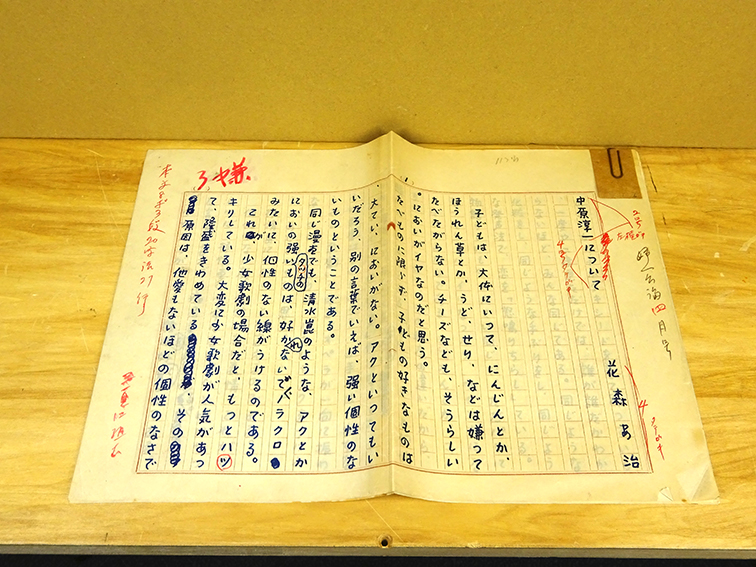 中原淳一について
花森安治
子どもは、大体にいって、にんじんとか、
ほうれん草とか、うど、せり、などは嫌って
たべたがらない。チーズなども、そうらしい
。においがイヤなのだと思う。
たべものに限らず、子どもの好きなものは
、大てい、においがない。アクといってもい
いだろう、別の言葉でいえば、強い個性のな
いものということである。
同じ漫画でも、清水崑のような、アクとか
においの強いタッチのものは、好かれないで、バラクロ
みたいに、個性のない線がうけるのである。
これが少女歌劇の場合だと、もっとハッ
キリしている。大変に少女歌劇が人気があっ
て、隆盛をきわめている、その
原因は、他愛もないほどの個性のなさで
四月号